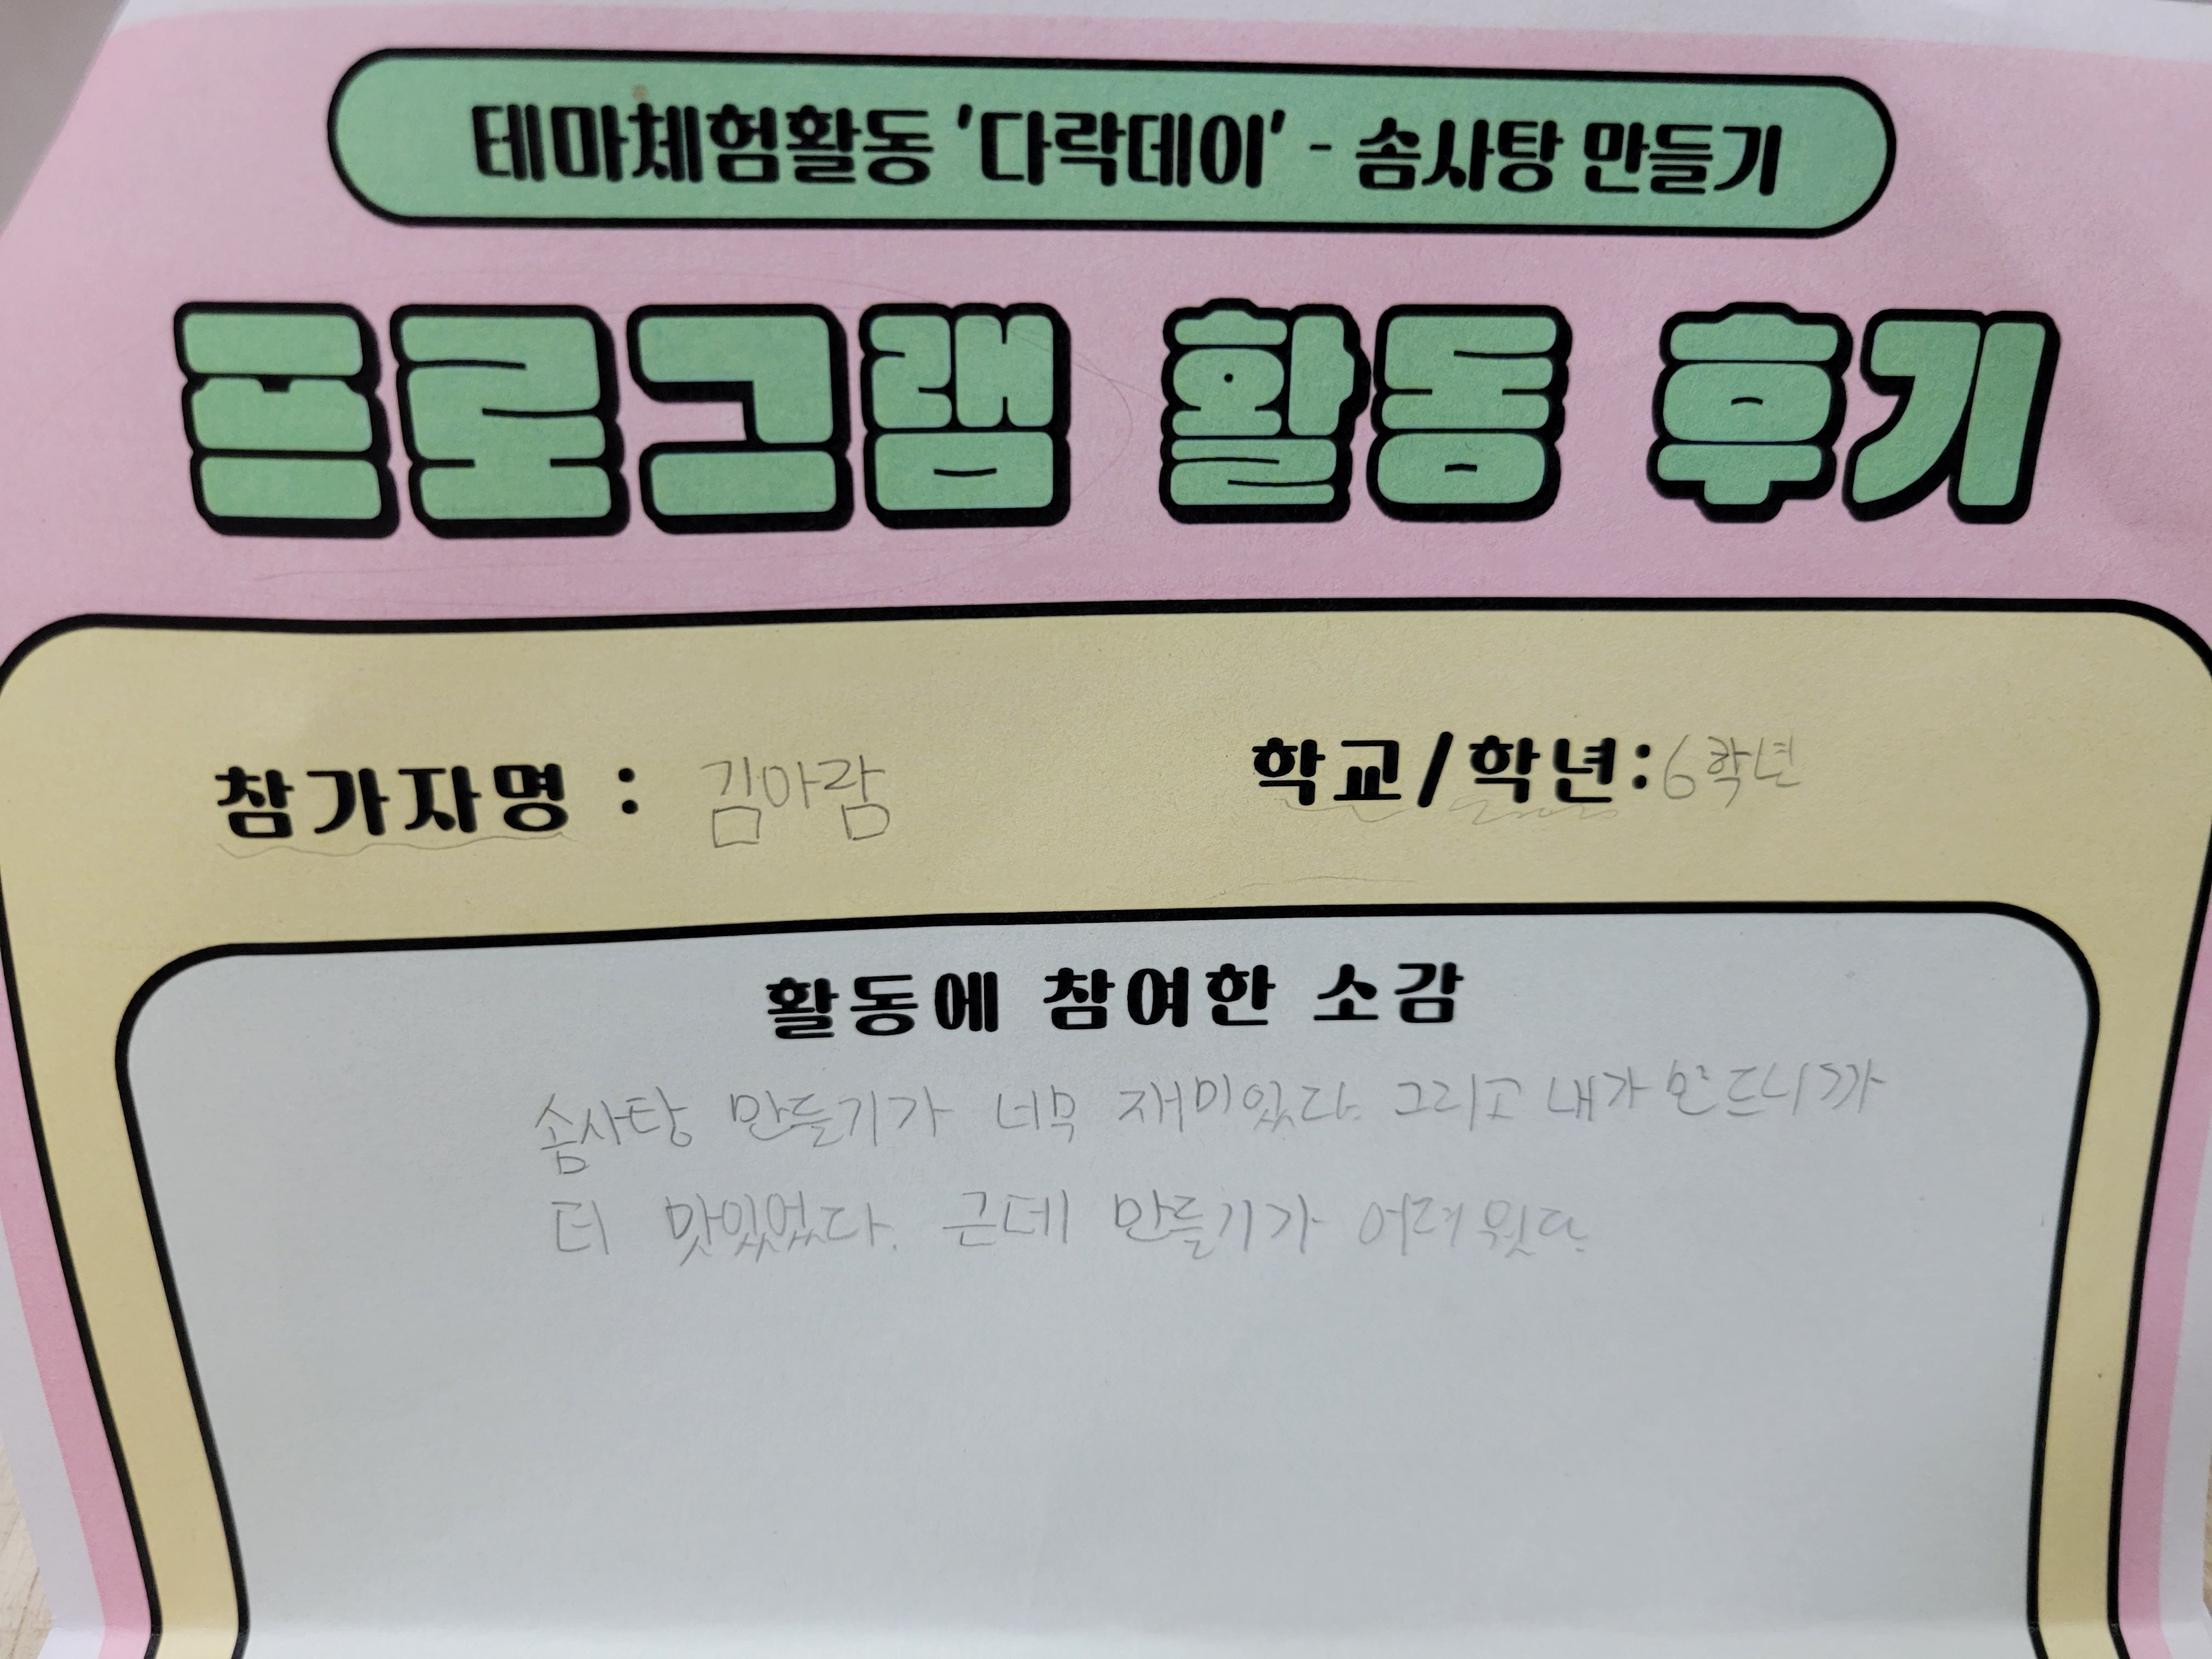 테마체험활동 '다락데이' - 솜사탕 만들기
프로그램 활동 후기
참가자명 : 김아람 학교/학년:6학년
활동에 참여한 소감
솜사탕 만들기가 너무 재미있다. 그리고 내가 만드니까
더 맛있었다. 근데 만들기가 어려웠다.